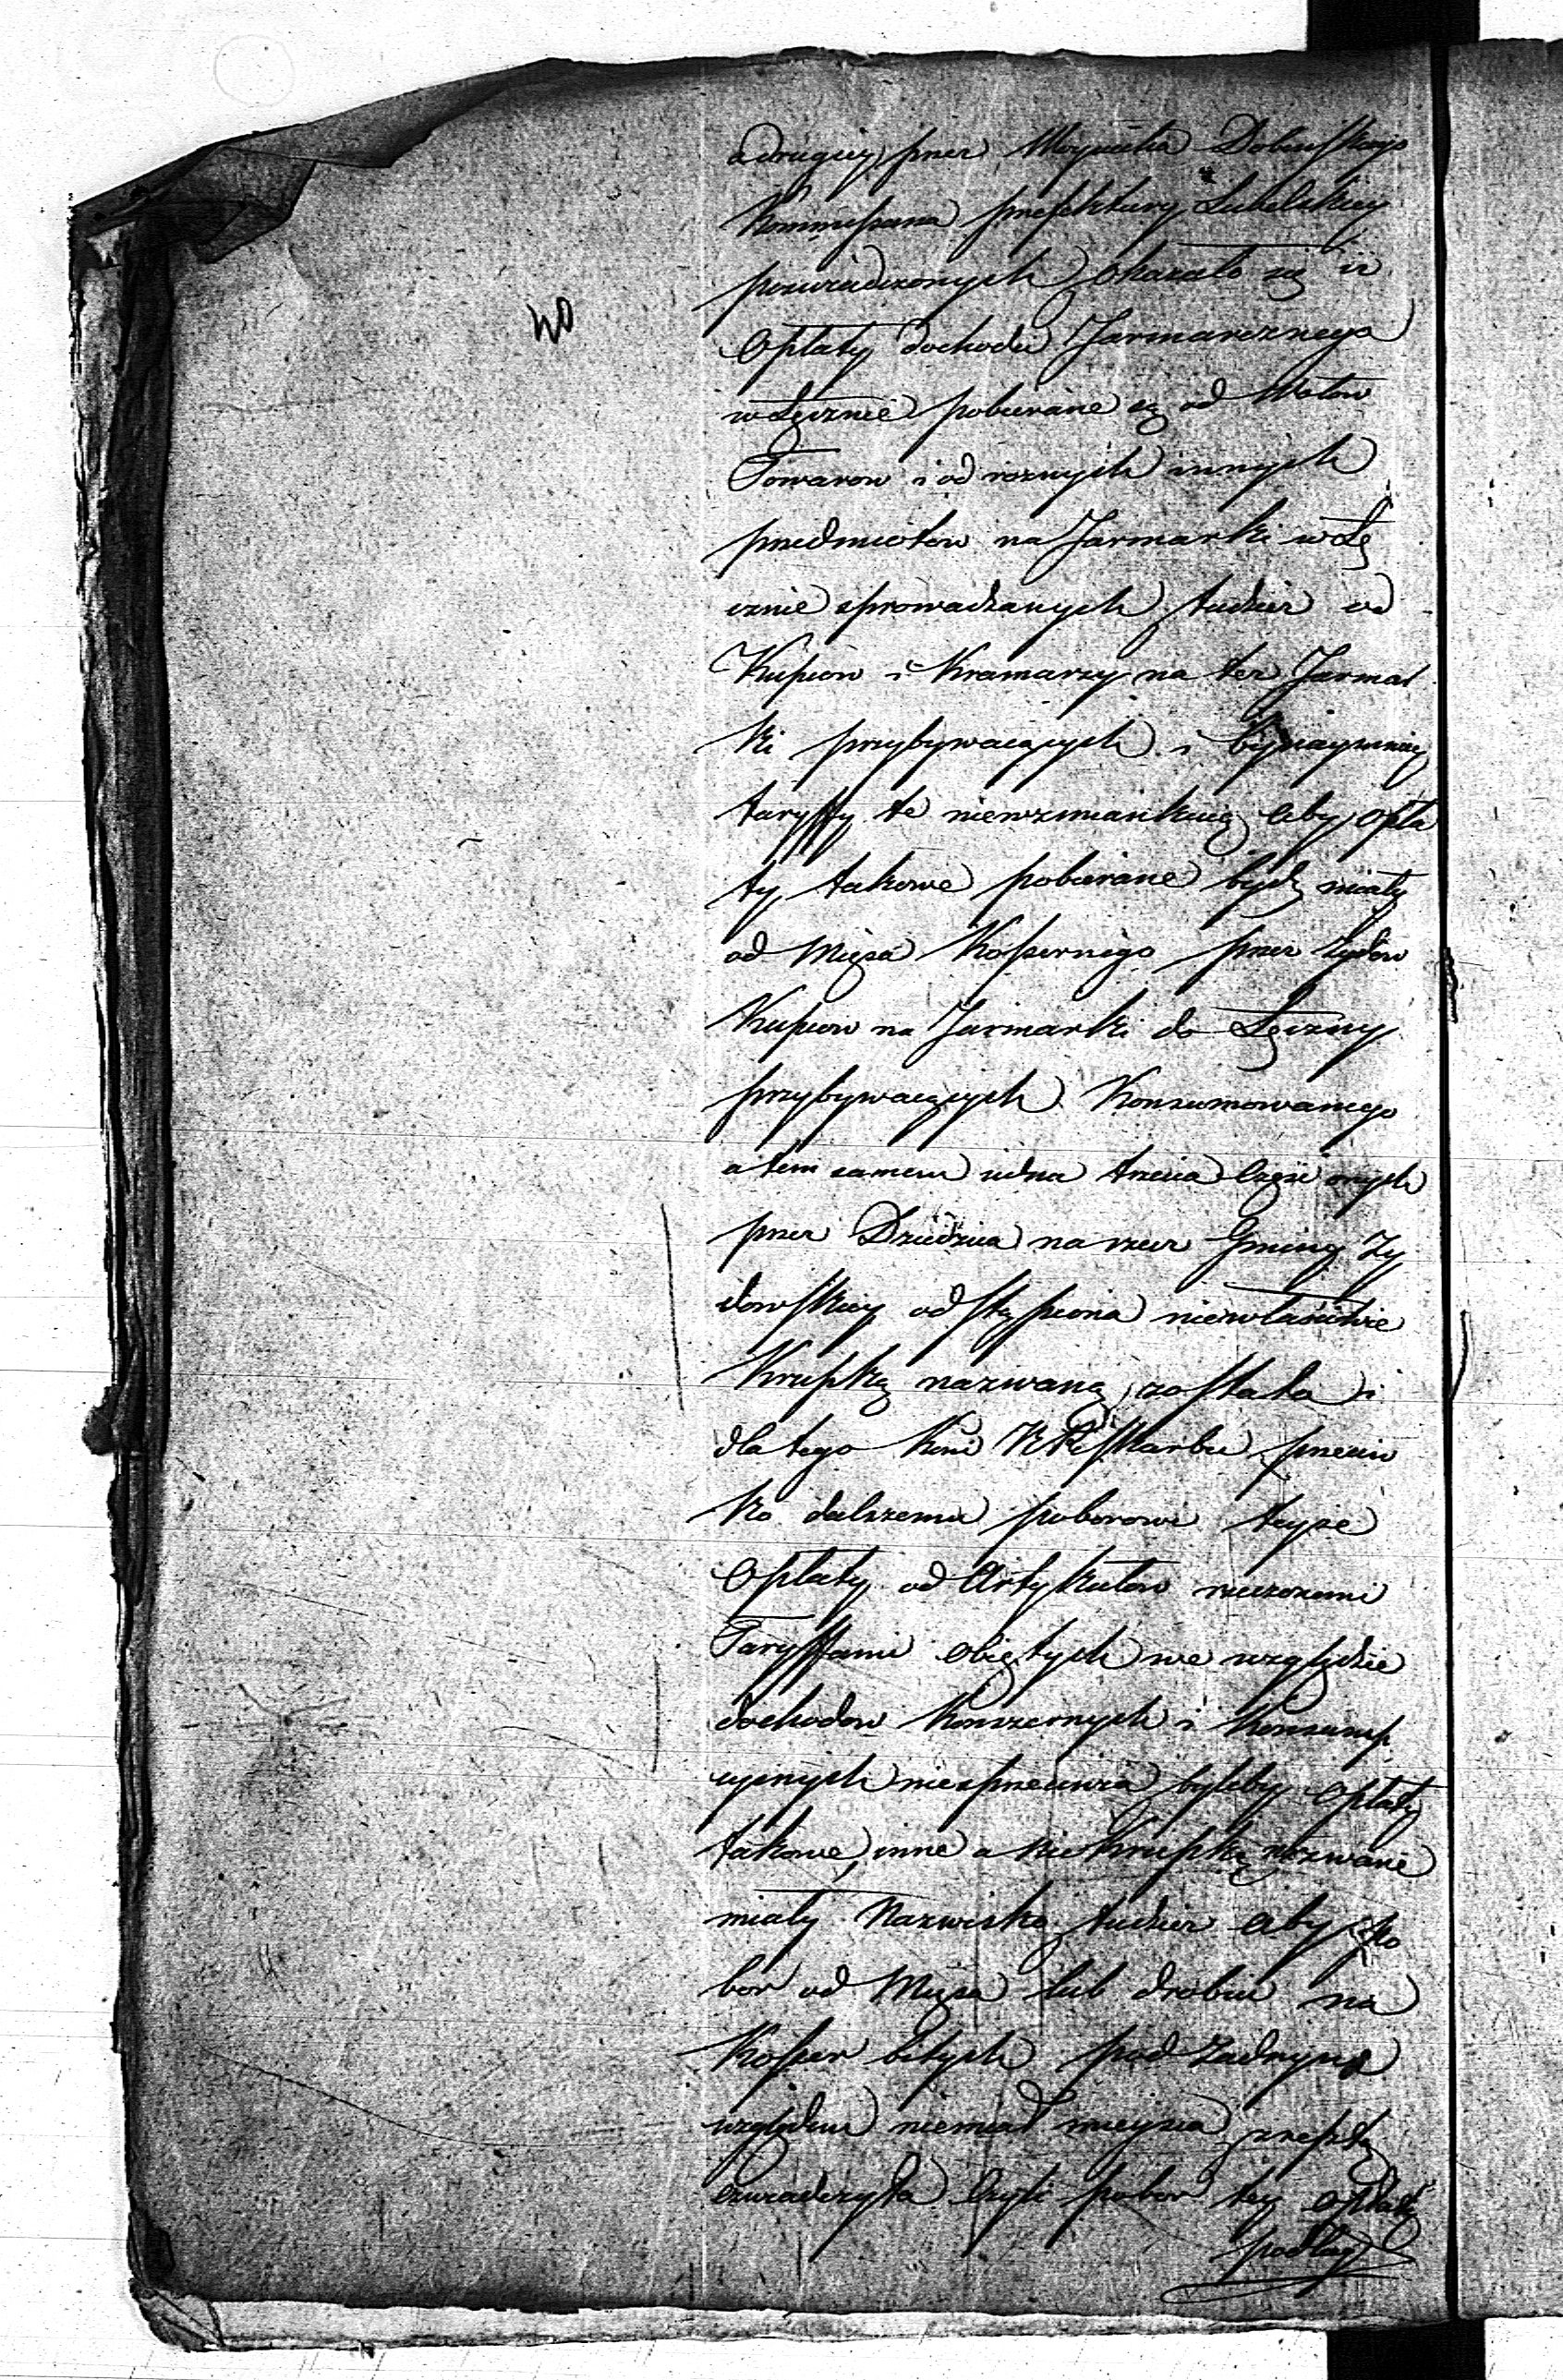 a drugiey przez Woyciecha Dolinskiego
Kommissarza prefektury Lubelskiey
poswiadczonych okazało się iż
40
Opłaty dochodu Jarmarcznego
w Łęcznie pobierane są od Wołow
Towarow i od roznych innych
przedmiotow na Jarmarki w Łę
cznie sprowadzanych tudzież od
Kupcow i Kramarzy na też Jarmar
ki przybywaiących i bynaymniey
taryffy te niewzmiankuią aby opła
ty takowe pobierane bydź miały
od Mięsa Koszernego przez Żydow
Kupcow na Jarmarki do Łęczny
przybywaiących Konsumowanego
a tem samem iedna trzecia Część onych
przez Dziedzica na rzecz Gminy Ży
dowskiey odstąpiona niewłasciwie
Krupką nazwaną została i
dla tego KRSkarbu przeciw
ko dalszemu poborowi teyże
Opłaty od Artykułow rzeczonemi
Taryffami obiętych we względzie
dochodow Konszernych i Konsump
cyinych niesprzeciwia byleby Opłaty
takowe inne a nie Krupką nazwane
miały Nazwisko tudzież aby po
bor od Mięsa lub drobiu na
Koszer bitych pod żadnym
względem niemiał mieysca
czyli pobor tey opłaty
podług